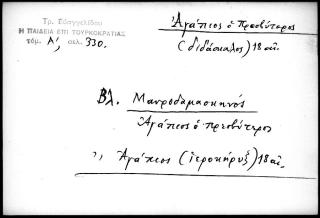 Τρ. Εὐαγγελίδου
Η ΠΑΙΔΕΙΑ ΕΠΙ ΤΟΥΡΚΟΚΡΑΤΙΑΣ
τόμ. Α', σελ. 330.
Ἀγάπιος ὁ Πρεσβύτερος
(διδάσκαλος) 18 αἰ.
Βλ. Μαυροδαμασκηνός
Ἀγάπιος ὁ πρεσβύτερος
" Ἀγάπιος (ἱεροκήρυξ) 18 αἰ.